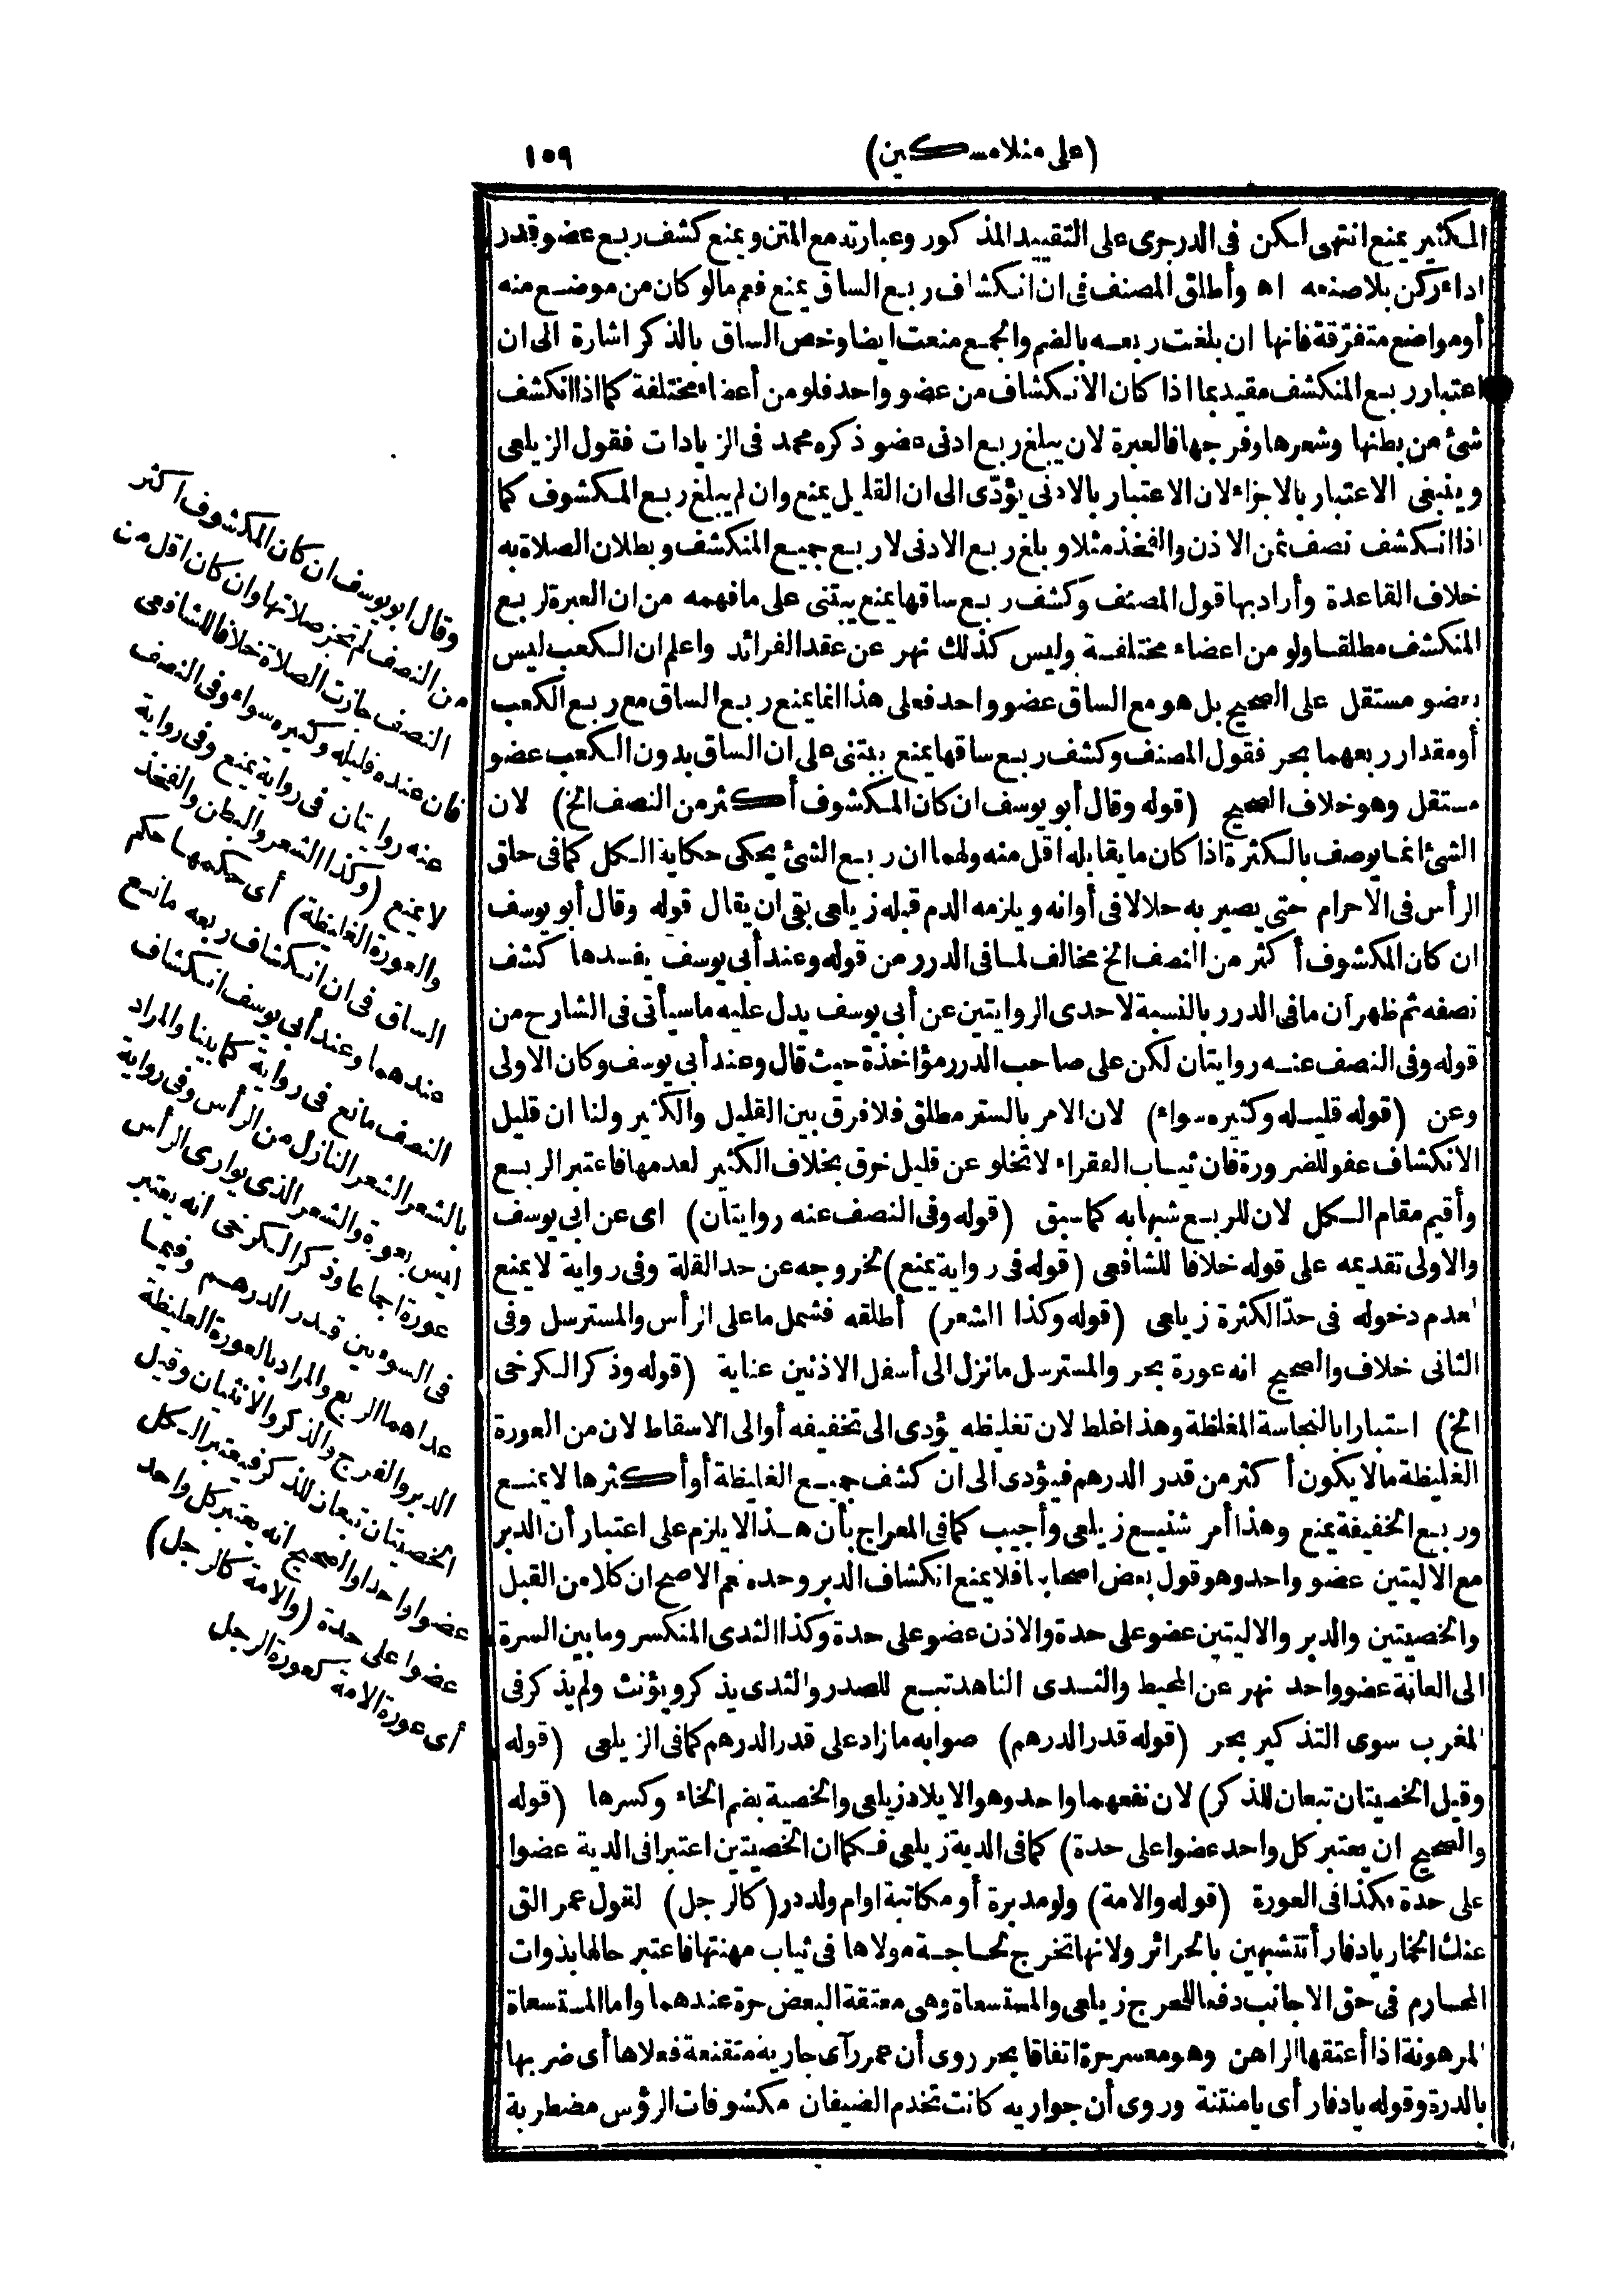 (على منلا مسكين)
١٥٩
الكثير يمنع انتهى لكن فى الدر جرى على التقييد المذكور وعبارته مع المتن ويمنع كشف ربع عضو قدر
اداء ركن بلا صنعه اه وأطلق المصنف فى ان انكشاف ربع الساق يمنع فعم ما لو كان من موضع منه
أو مواضع متفرقة فانها ان بلغت ربعه بالضم والجمع منعت ايضا وخص الساق بالذكر اشارة الى ان
اعتبار ربع المنكشف مقيد بما اذا كان الانكشاف من عضو واحد فلو من أعضاء مختلفة كما اذا انكشف
شئ من بطنها وشعرها وفرجها فالعبرة لان يبلغ ربع ادنى عضو ذكره محمد فى الزيادات فقول الزيلعى
وينبغى الاعتبار بالاجزاء لان الاعتبار بالادنى يؤدّى الى ان القليل يمنع وان لم يبلغ ربع المكشوف كما
اذا انكشف نصف ثمن الاذن والفخذ مثلا وبلغ ربع الادنى لا ربع جميع المنكشف وبطلان الصلاة به
خلاف القاعدة وأراد بها قول المصنف وكشف ربع ساقها يمنع يبتنى على ما فهمه من ان العبرة لربع
المنكشف مطلقا ولو من اعضاء مختلفة وليس كذلك نهر عن عقد الفرائد واعلم ان الكعب ليس
بعضو مستقل على الصحيح بل هو مع الساق عضو واحد فعلى هذا انما يمنع ربع الساق مع ربع الكعب
أو مقدار ربعهما بحر فقول المصنف وكشف ربع ساقها يمنع يبتنى على ان الساق بدون الكعب عضو
مستقل وهو خلاف الصحيح (قوله وقال أبو يوسف ان كان المكشوف أكثر من النصف الخ) لان
الشئ انما يوصف بالكثرة اذا كان ما يقابله اقل منه ولهما ان ربع الشئ يحكى حكاية الكل كما فى حلق
الرأس فى الاحرام حتى يصير به حلالا فى أوانه ويلزمه الدم قبله زيلعى بقى ان يقال قوله وقال أبو يوسف
ان كان المكشوف أكثر من النصف الخ مخالف لما فى الدرر من قوله وعند أبى يوسف يفسدها كشف
نصفه ثم ظهر أن ما فى الدرر بالنسبة لاحدى الروايتين عن أبى يوسف يدل عليه ما سيأتى فى الشارح من
قوله وفى النصف عنه روايتان لكن على صاحب الدرر مؤاخذة حيث قال وعند أبى يوسف وكان الاولى
وعن (قوله قليله وكثيره سواء) لان الامر بالستر مطلق فلا فرق بين القليل والكثير ولنا ان قليل
الانكشاف عفو للضرورة فان ثياب الفقراء لا تخلو عن قليل خرق بخلاف الكثير لعدمها فاعتبر الربع
وأقيم مقام الكل لان للربع شبها به كما سبق (قوله وفى النصف عنه روايتان) اى عن ابى يوسف
والاولى تقديمه على قوله خلافا للشافعى (قوله فى رواية يمنع) لخروجه عن حد القلة وفى رواية لا يمنع
لعدم دخوله فى حدّ الكثرة زيلعى (قوله وكذا الشعر) أطلقه فشمل ما على الرأس والمسترسل وفى
الثانى خلاف والصحيح انه عورة بحر والمسترسل ما نزل الى أسفل الاذنين عناية (قوله وذكر الكرخى
الخ) اعتبارا بالنجاسة المغلظة وهذا غلط لان تغليظه يؤدى الى تخفيفه أو الى الاسقاط لان من العورة
الغليظة ما لا يكون أكثر من قدر الدرهم فيؤدى الى ان كشف جميع الغليظة أو أكثرها لا يمنع
وربع الخفيفة يمنع وهذا أمر شنيع زيلعى وأجيب كما فى المعراج بأن هذا لا يلزم على اعتبار أن الدبر
مع الاليتين عضو واحد وهو قول بعض اصحابنا فلا يمنع انكشاف الدبر وحده نعم الاصح ان كلا من القبل
والخصيتين والدبر والاليتين عضو على حدة والاذن عضو على حدة وكذا الثدى المنكسر وما بين السرة
الى العانة عضو واحد نهر عن المحيط والثدى الناهد تبع للصدر والثدى يذكر ويؤنث ولم يذكر فى
المغرب سوى التذكير بحر (قوله قدر الدرهم) صوابه ما زاد على قدر الدرهم كما فى الزيلعى (قوله
وقيل الخصيتان تبعان للذكر) لان نفعهما واحد وهو الايلاد زيلعى والخصية بضم الخاء وكسرها (قوله
والصحيح ان يعتبر كل واحد عضوا على حدة) كما فى الدية زيلعى فكما ان الخصيتين اعتبرا فى الدية عضوا
على حدة هكذا فى العورة (قوله والامة) ولو مدبرة أو مكاتبة او ام ولد در (كالرجل) لقول عمر القى
عنك الخمار يا دفار أتتشبهين بالحرائر ولانها تخرج لحاجة مولاها فى ثياب مهنتها فاعتبر حالها بذوات
المحارم فى حق الاجانب دفعا للحرج زيلعى والمستسعاة وهى معتقة البعض حرة عندهما واما المستسعاة
المرهونة اذا أعتقها الراهن وهو معسر حرة اتفاقا بحر روى أن عمر رآى جارية متقنعة فعلاها أى ضربها
بالدرة وقوله يا دفار أى يا منتنة وروى أن جواريه كانت تخدم الضيفان مكشوفات الرؤس مضطربة
وقال ابو يوسف ان كان المكشوف اكثر
من النصف لم تجز صلاتها وان كان اقل من
النصف جازت الصلاة خلافا للشافعى
فان عنده قليله وكثيره سواء وفى النصف
عنه روايتان فى رواية يمنع وفى رواية
لا يمنع (وكذا الشعر والبطن والفخذ
والعورة الغليظة) أى حكمها حكم
الساق فى ان انكشاف ربعه مانع
عندهما وعند أبى يوسف انكشاف
النصف مانع فى رواية كما بينا والمراد
بالشعر الشعر النازل من الرأس وفى رواية
ليس بعورة والشعر الذى يوارى الرأس
عورة اجماعا وذكر الكرخى انه يعتبر
فى السوءتين قدر الدرهم وفيما
عداهما الربع والمراد بالعورة الغليظة
الدبر والفرج والذكر والانثيان وقيل
الخصيتان تبعان للذكر فيعتبر الكل
عضوا واحدا والصحيح انه يعتبر كل واحد
عضوا على حدة (والامة كالرجل)
أى عورة الامة كعورة الرجل